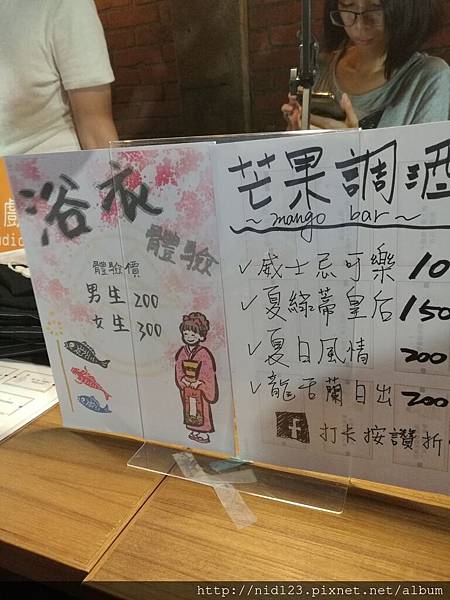 戲
udio
浴衣
體驗
體驗價
男生 200
女生 300
芒果調酒
~ mango bar ~
✓威士忌可樂 10
✓夏綠蒂皇后 150
✓夏日風情 200
✓龍舌蘭日出 200
f 打卡按讚折
http://nid123.pixnet.net/album